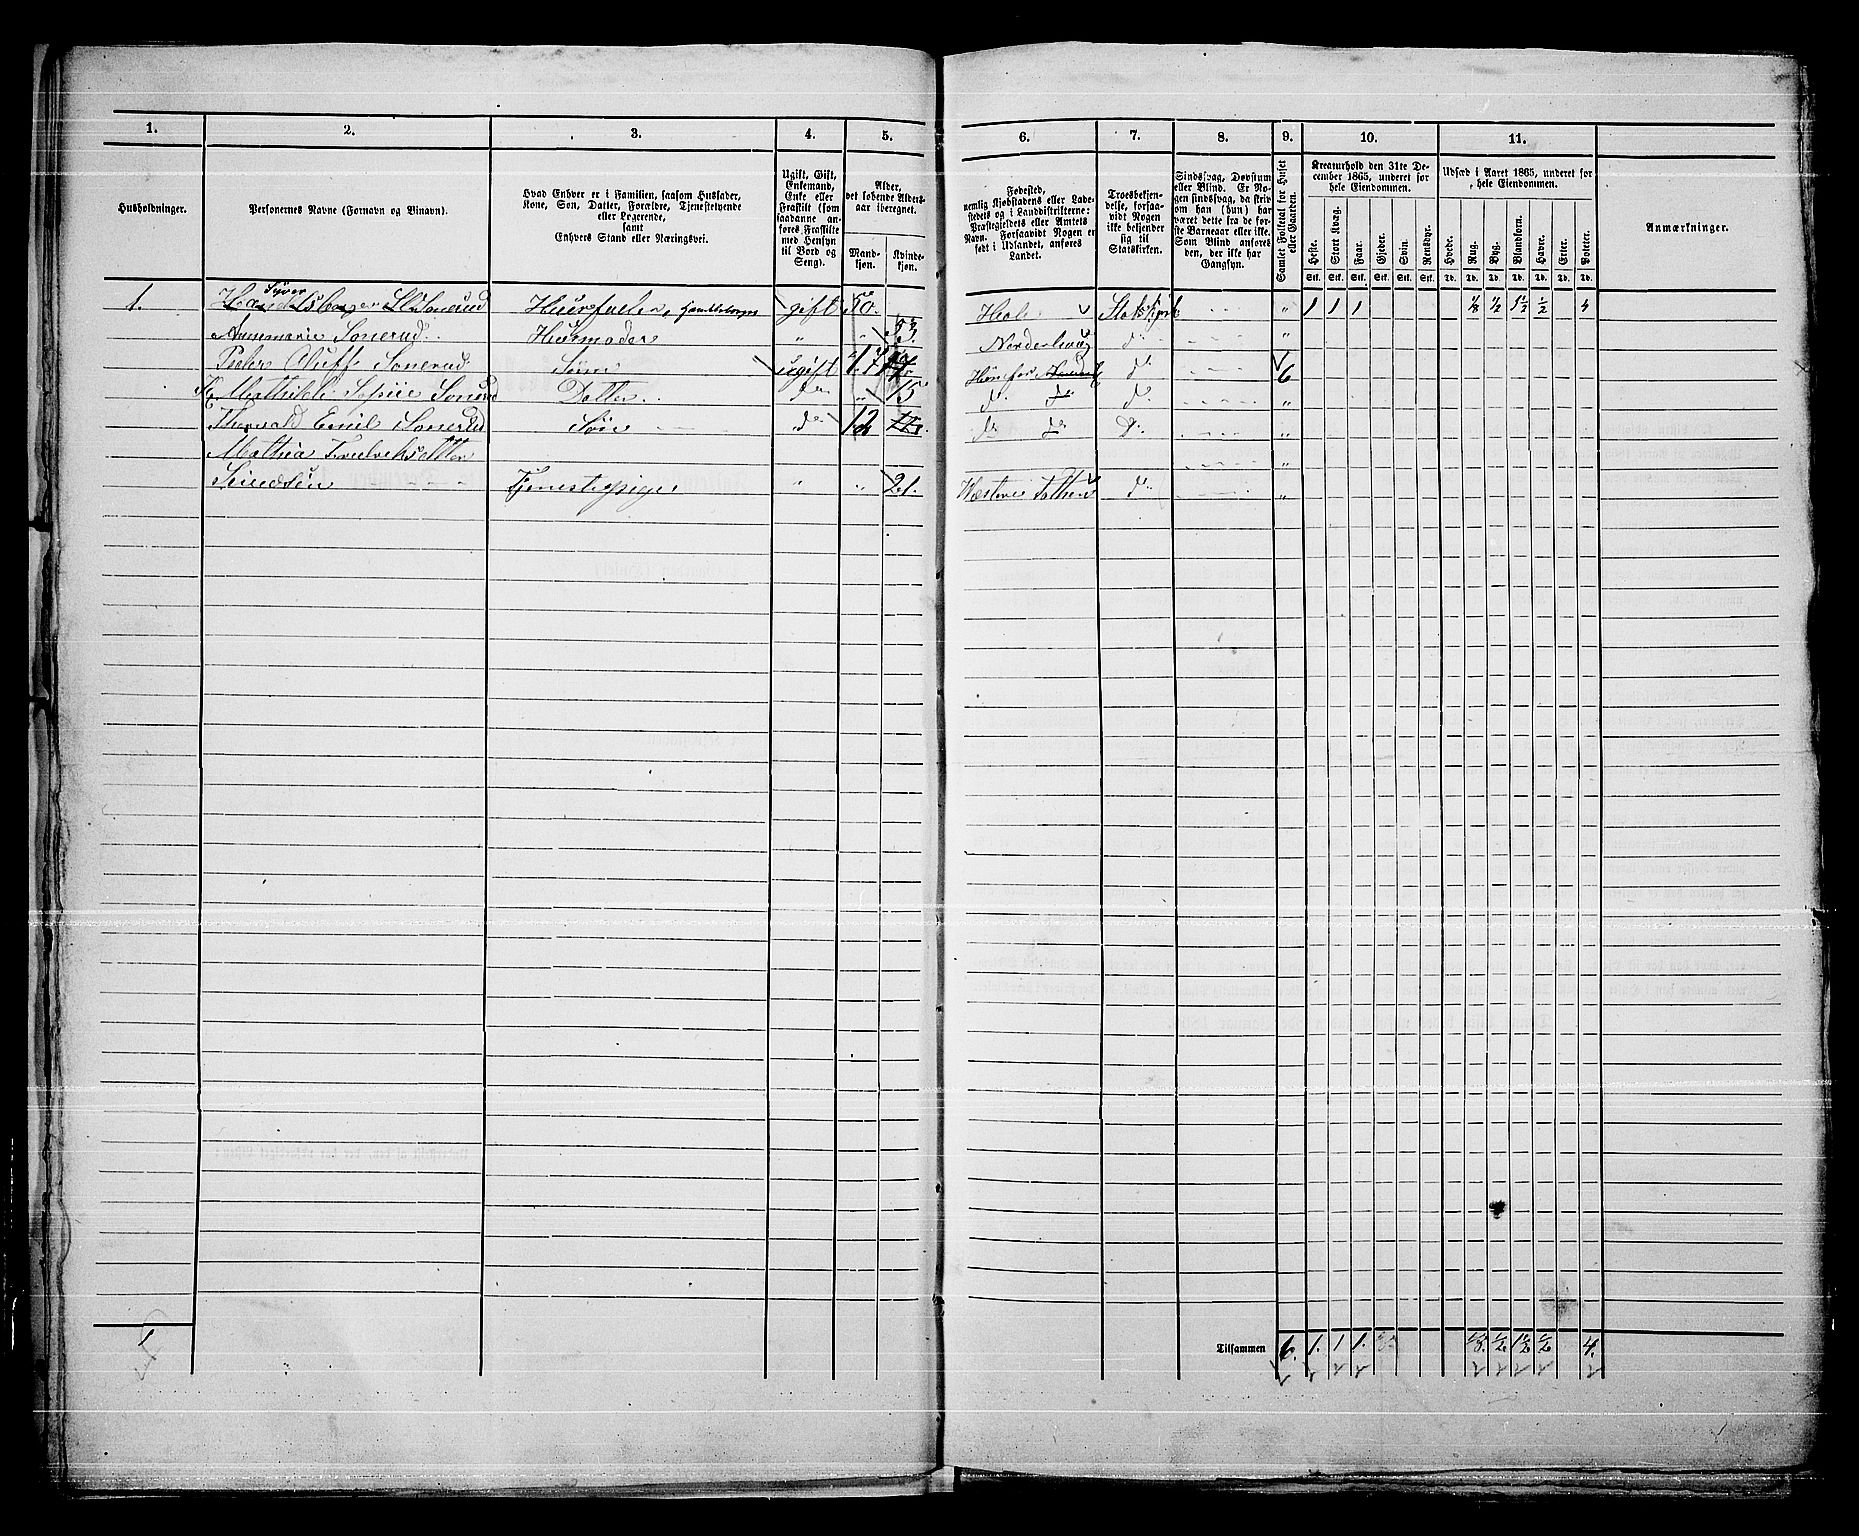 1.
2.
3.
4.
5.
6.
7.
8.
9.
10.
11.
Husholdninger.
Personernes Navne (Fornavn og Vinavn).
Hvad Enhver er i Familien, saasom Husfader,
Kone, Søn, Datter, Forældre, Tjenestetyende
eller Logerende,
samt
Enhvers Stand eller Næringsvei.
Ugift, Gift,
Enkemand,
Enke eller
Fraskilt (som
saadanne an-
føres Fraskilte
med Hensyn
til Bord og
Seng).
Alder,
det løbende Alders-
aar iberegnet.
Mand-
kjøn.
Kvinde-
kjøn.
Fødested,
nemlig Kjøbstadens eller Lade-
stedets og i Landdistrikterne:
Præstegjeldets eller Amtets
Navn. Forsaavidt Nogen er
født i Udlandet, anføres
Landet.
Troesbekjen-
delse, forsaa-
vidt Nogen
ikke bekjender
sig til
Statskirken.
Sindssvag, Døvstum
eller Blind. Er No-
gen sindssvag, da skriv
om han (hun) har
været dette fra de før-
ste Barneaar eller ikke.
Som Blind anføres
den, der ikke har
Gangsyn.
Samlet Folketal for Huset
eller Gaarden.
Kreaturhold den 31te De-
cember 1865, underet for
hele Eiendommen.
Heste. Stort Kvæg. Faar. Gjeder. Svin. Rensdyr.
Stk. Stk. Stk. Stk. Stk. Stk.
Udsæd i Aaret 1865, underet for
hele Eiendommen.
Hvede. Rug. Byg. Blandkorn. Havre. Erter. Poteter.
Td. Td. Td. Td. Td. Td. Td.
Anmærkninger.
Syver
1. Sonerud Huusfader, gift 50. Hole Statskirke " 1 1 1 1/8 1/2 1 1/2 1/2 4
Annemarie Sonerud Husmoder " " 53. Norderhoug do "
Peder Oluff Sonerud Søn ugift 17 Hønefos do 6
Mathilde Sophie Sonerud Datter do " 15 do do do "
Thorvald Emil Sonerud Søn do 12 do do Do "
Mathia Fredriksdatter "
Tjenestepige " " 21. Westre Tothen do "
Tilsammen 6. 1. 1 1. 1/8. 1/2 1 1/2 1/2 4.
1